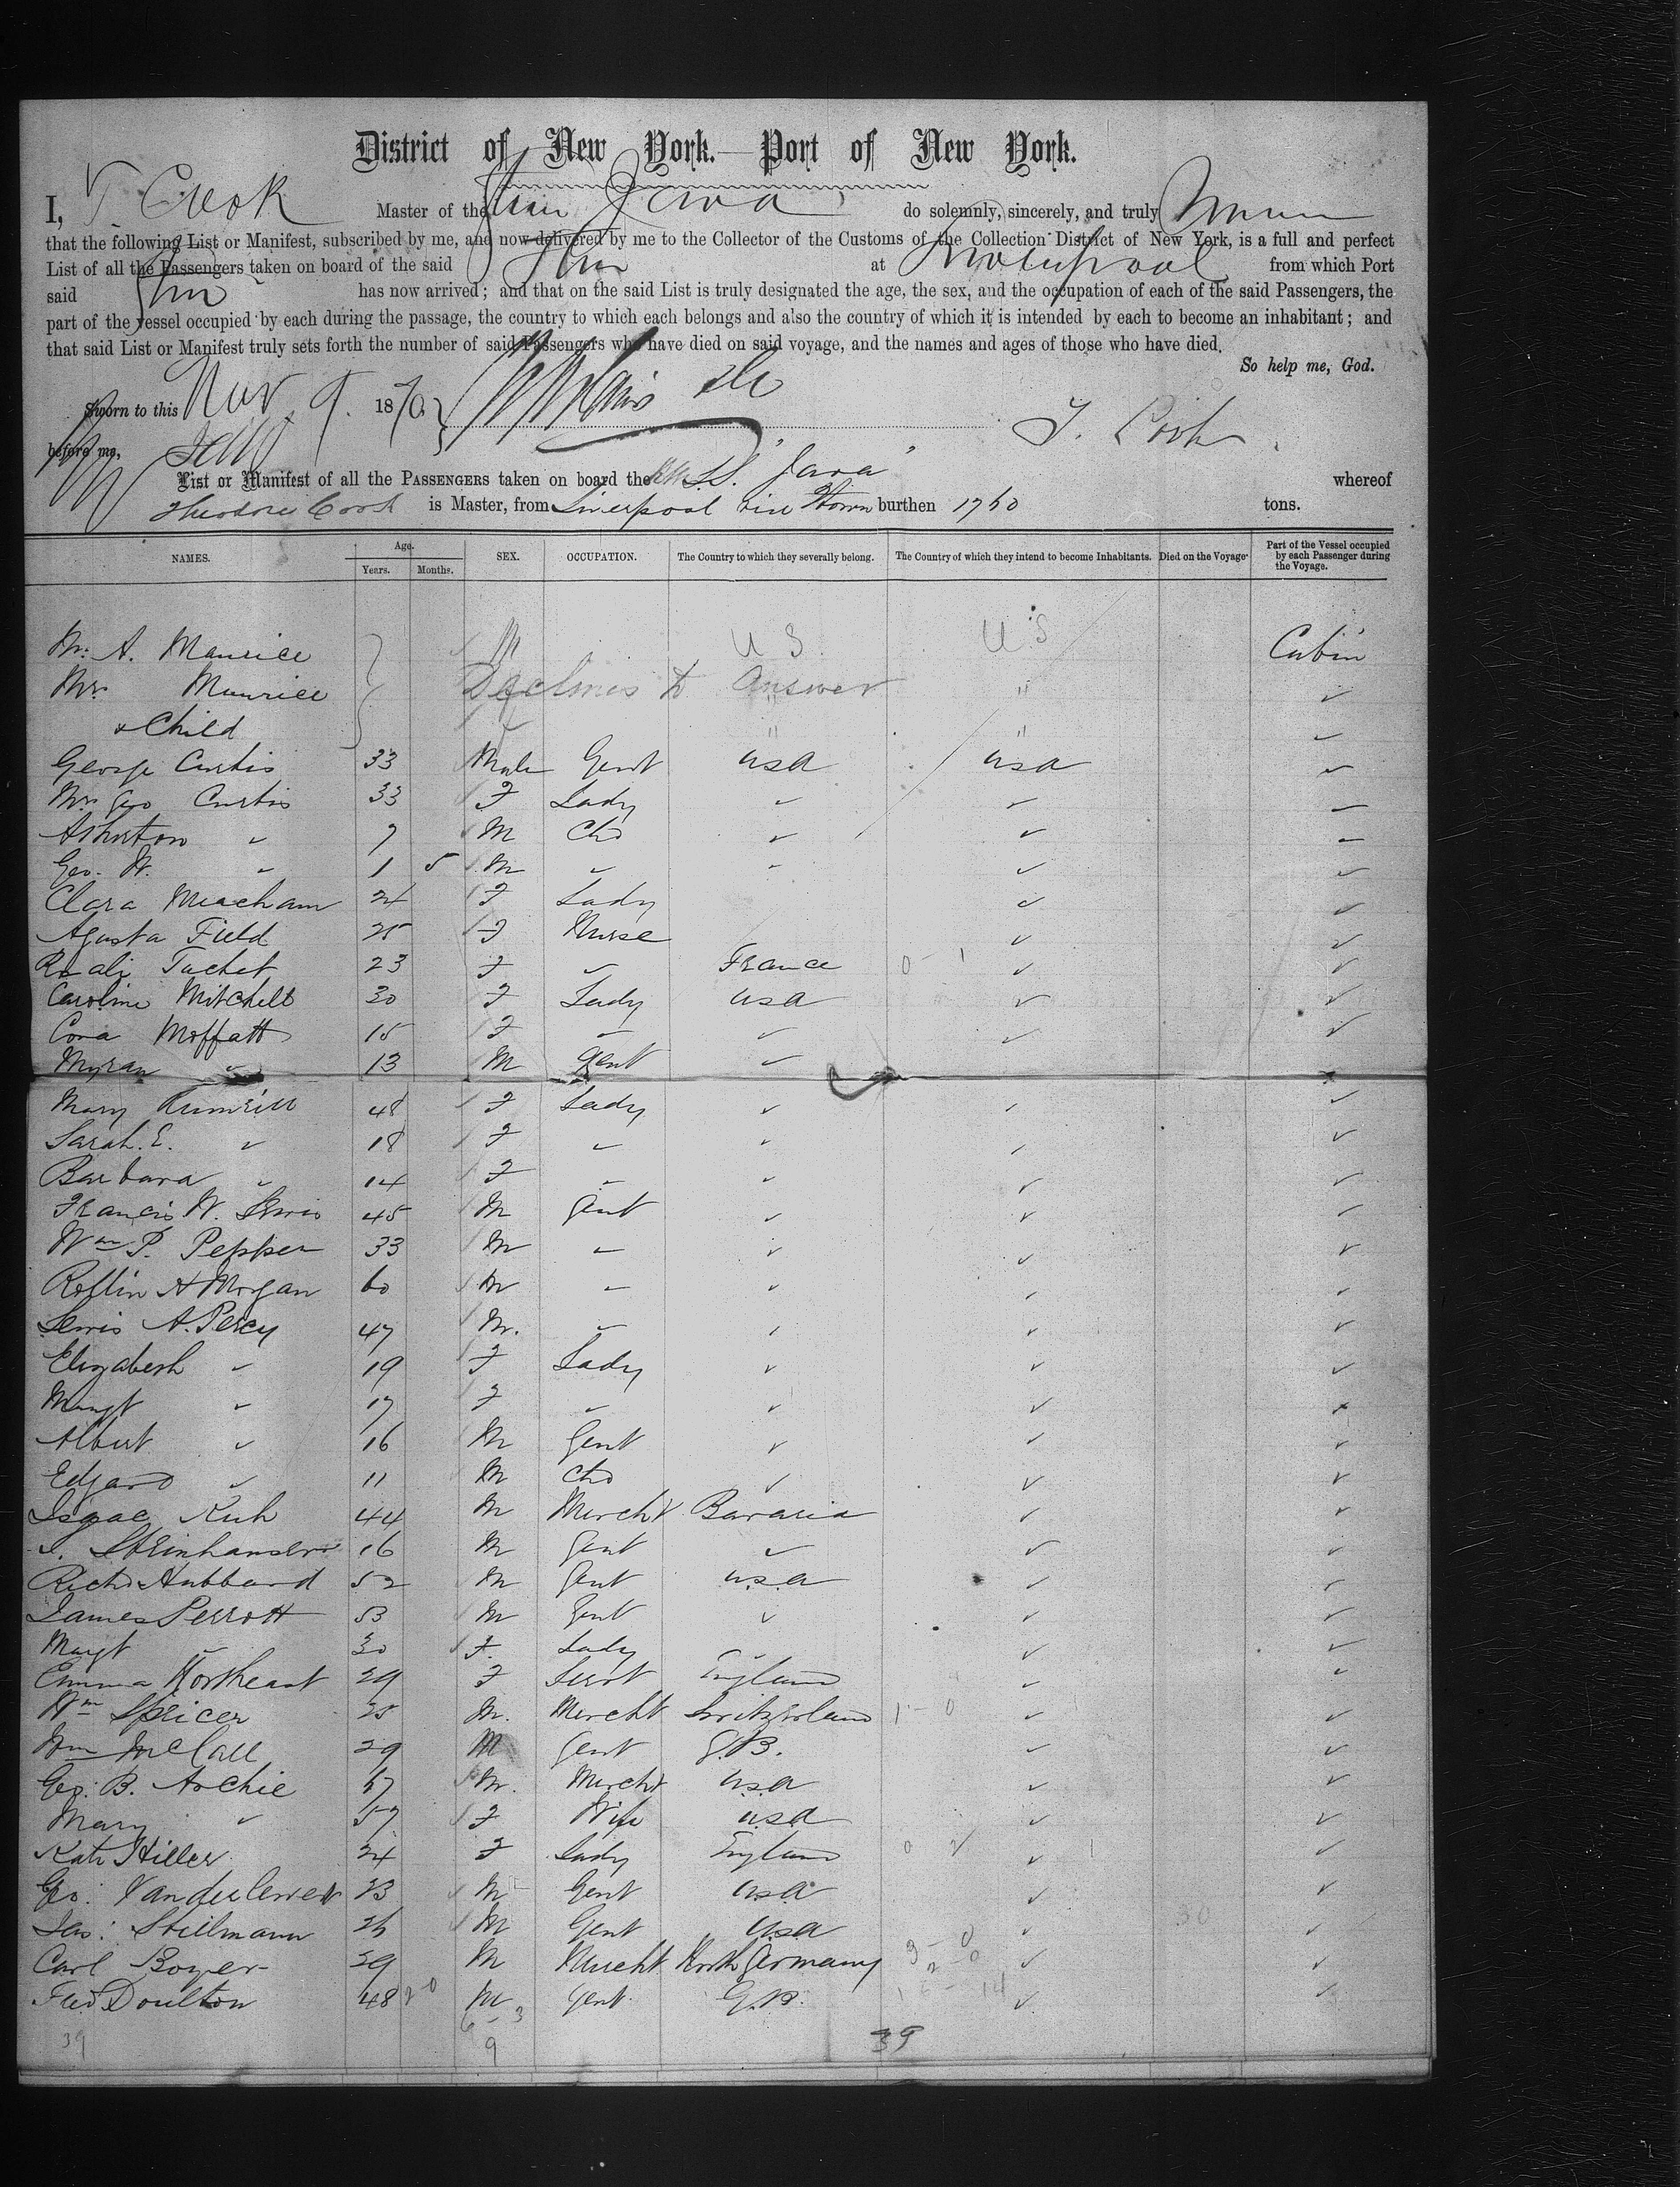 District of New York.—Port of New York.
I, T. Cook Master of the Stm Java do solemnly, sincerely, and truly swear
that the following List or Manifest, subscribed by me, and now delivered by me to the Collector of the Customs of the Collection District of New York, is a full and perfect
List of all the Passengers taken on board of the said Stm at Liverpool from which Port
said Stm has now arrived; and that on the said List is truly designated the age, the sex, and the occupation of each of the said Passengers, the
part of the vessel occupied by each during the passage, the country to which each belongs and also the country of which it is intended by each to become an inhabitant; and
that said List or Manifest truly sets forth the number of said Passengers who have died on said voyage, and the names and ages of those who have died.
So help me, God.
Sworn to this Nov. 9. 1870.
before me, T. Cook
List or Manifest of all the PASSENGERS taken on board the S.S. "Java" whereof
Theodore Cook is Master, from Liverpool via Qtown burthen 1760 tons.
NAMES. Age. Years. Months. SEX. OCCUPATION. The Country to which they severally belong. The Country of which they intend to become Inhabitants. Died on the Voyage. Part of the Vessel occupied by each Passenger during the Voyage.
Mr. A. Maurice M U S. U S Cabin
Mrs Maurice Declines to answer " ✓
& Child " " ✓
George Curtis 33 Male Gent USA USA ✓
Mrs Geo Curtis 33 F Lady ✓ ✓ ✓
Ashnton ✓ 7 M Chd ✓ ✓ ✓
Geo. W. ✓ 1 5 M ✓ ✓ ✓ ✓
Clara Meacham 24 F Lady ✓ ✓
Agusta Field 25 F Nurse ✓ ✓
Tuchet 23 F ✓ France 0 - 1 ✓ ✓
Caroline Mitchell 30 F Lady USA ✓ ✓
Cora Moffatt 15 F ✓ ✓ ✓ ✓
Myran ✓ 13 M Gent ✓
Mary Rumrill 48 F Lady ✓ ✓ ✓
Sarah. E. ✓ 18 F ✓ ✓ ✓ ✓
Barbara ✓ 14 F ✓ ✓ ✓ ✓
Francis W. Lewis 45 M Gent ✓ ✓ ✓
Wm P. Pepper 33 M ✓ ✓ ✓ ✓
Rollin A Morgan 60 M ✓ ✓ ✓ ✓
Lewis A. Percy 47 M. ✓ ✓ ✓ ✓
Elizabeth ✓ 19 F Lady ✓ ✓ ✓
Margt ✓ 17 F ✓ ✓ ✓ ✓
Albert ✓ 16 M Gent ✓ ✓ ✓
Edgard ✓ 11 M Chd ✓ ✓ ✓
Isaac Kuh 44 M Mercht Bavaria ✓ ✓
Steinhauser 16 M Gent ✓ ✓ ✓
Richd Hubbard 52 M Gent U.S.A ✓ ✓
James Perrott 53 M Gent ✓ ✓ ✓
Margt ✓ 30 F. Lady ✓ ✓ ✓
Emma Northeast 29 F Servt England ✓ ✓
Wm Speicer 25 M. Mercht Switzerland 1 - 0 ✓ ✓
Wm McCall 29 M Gent G.B. ✓ ✓
Geo: B. Archie 57 M. Mercht U.S.A ✓ ✓
Mary ✓ 57 F Wife U.S.A ✓ ✓
Kate Hiller 24 F Lady England 0 2 ✓ 1 ✓
Geo: 23 M Gent U.S.A ✓ ✓
Jas: Stillmann 26 M Gent U.S.A ✓ 30 ✓
Carl Boyer 29 M Mercht North Germany 3 - 0 2 - 0 ✓ ✓
Fred Doulton 48 2 0 M Gent G.B. 16 - 14 ✓ ✓
39 6 - 3 39
9